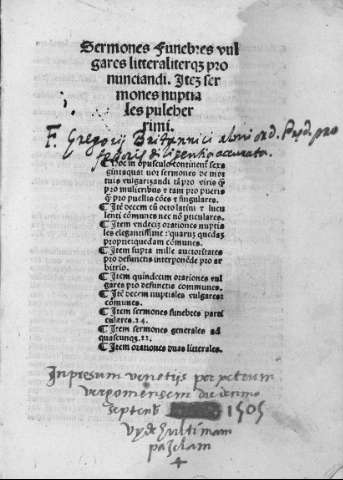 Sermones Funebres vul
gares litteraliterqz pro
nunciandi. Itez ser
mones nuptia
les pulcher
rimi.
F. Gregorij Britannici ord. Pręd. pro
diligentia accurata.
¶ Hoc in opusculo continent sexa
ginta quatuor sermones de mor
tuis vulgarizandi tā pro viris qz
pro mulieribus & tam pro pueris
qz pro puellis cōes & singulares.
¶ Itē decem cū octo latini & lucu
lenti cōmunes nec nō pticulares.
¶ Item vndecīz orationes nuptia
les elegantissime: quaruz quedaz
proprie quedam cōmunes.
¶ Item supra mille auctoritates
pro defunctis interponēde pro ar
bitrio.
¶ Item quindecim orationes vul
gares pro defunctis communes.
¶ Itē decem nuptiales vulgares
cōmunes.
¶ Item sermones funebres parti
culares.24.
¶ Item sermones generales ad
quascunqz.12.
¶ Item orationes duas litterales.
Inpresum venetijs per petrum
vergomensem die
septenb 1505
vyde hultimam
pazelam